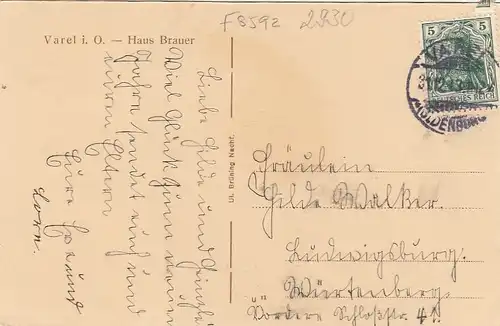 F8592 2230
Varel i. O. — Haus Brauer
5 5
VAREL
OLDENBURG
Liebe Hilde und
Viel Glück zum neuen
Jahre sendet euch und
euren Eltern
Eure Freundin
Ul. Brüning Nachf.
Fräulein
Hilde Walker.
Ludwigsburg.
Würtenberg.
Vordere Schloßstr. 41